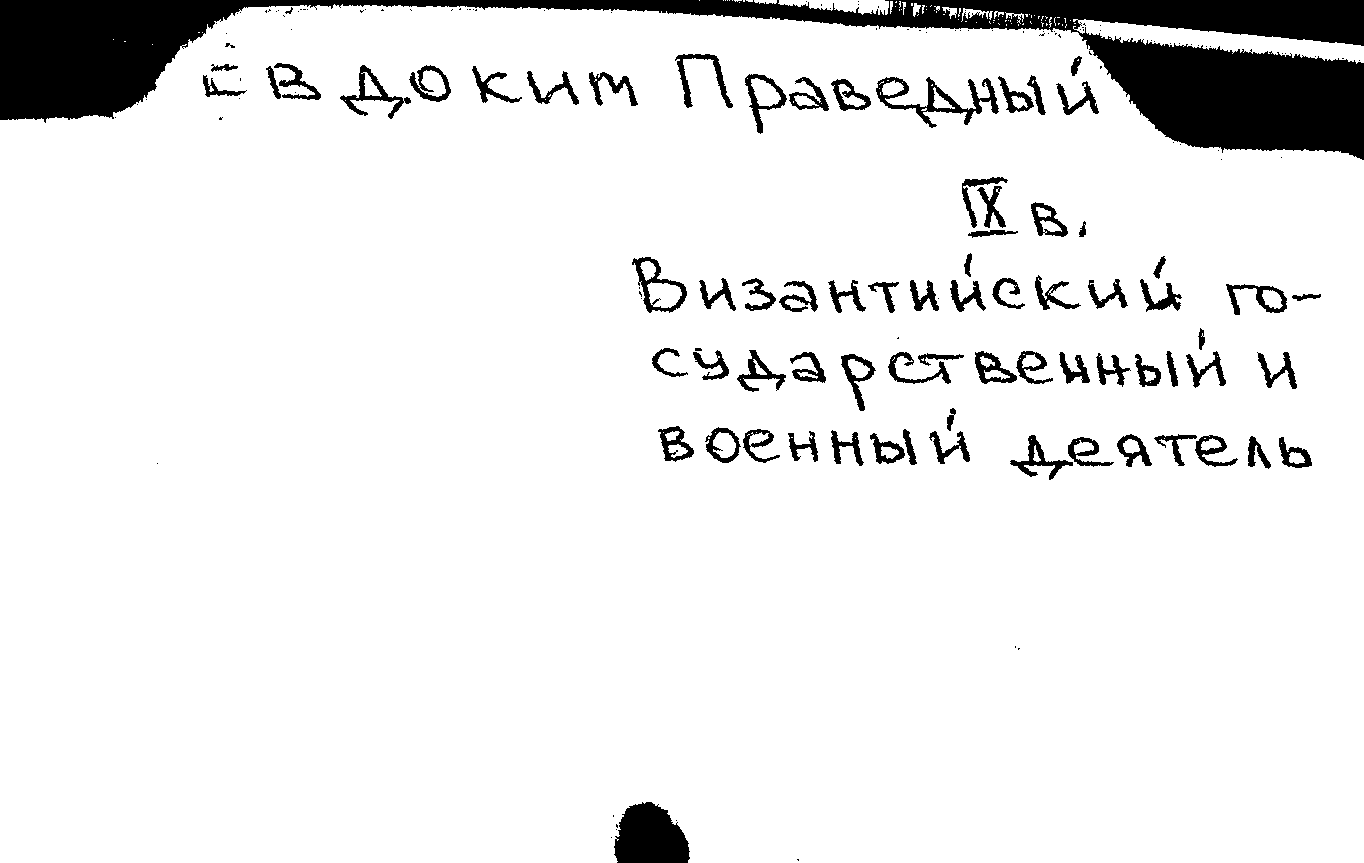 Евдоким Праведный
IX в.
Византийский го-
сударственный и
военный деятель